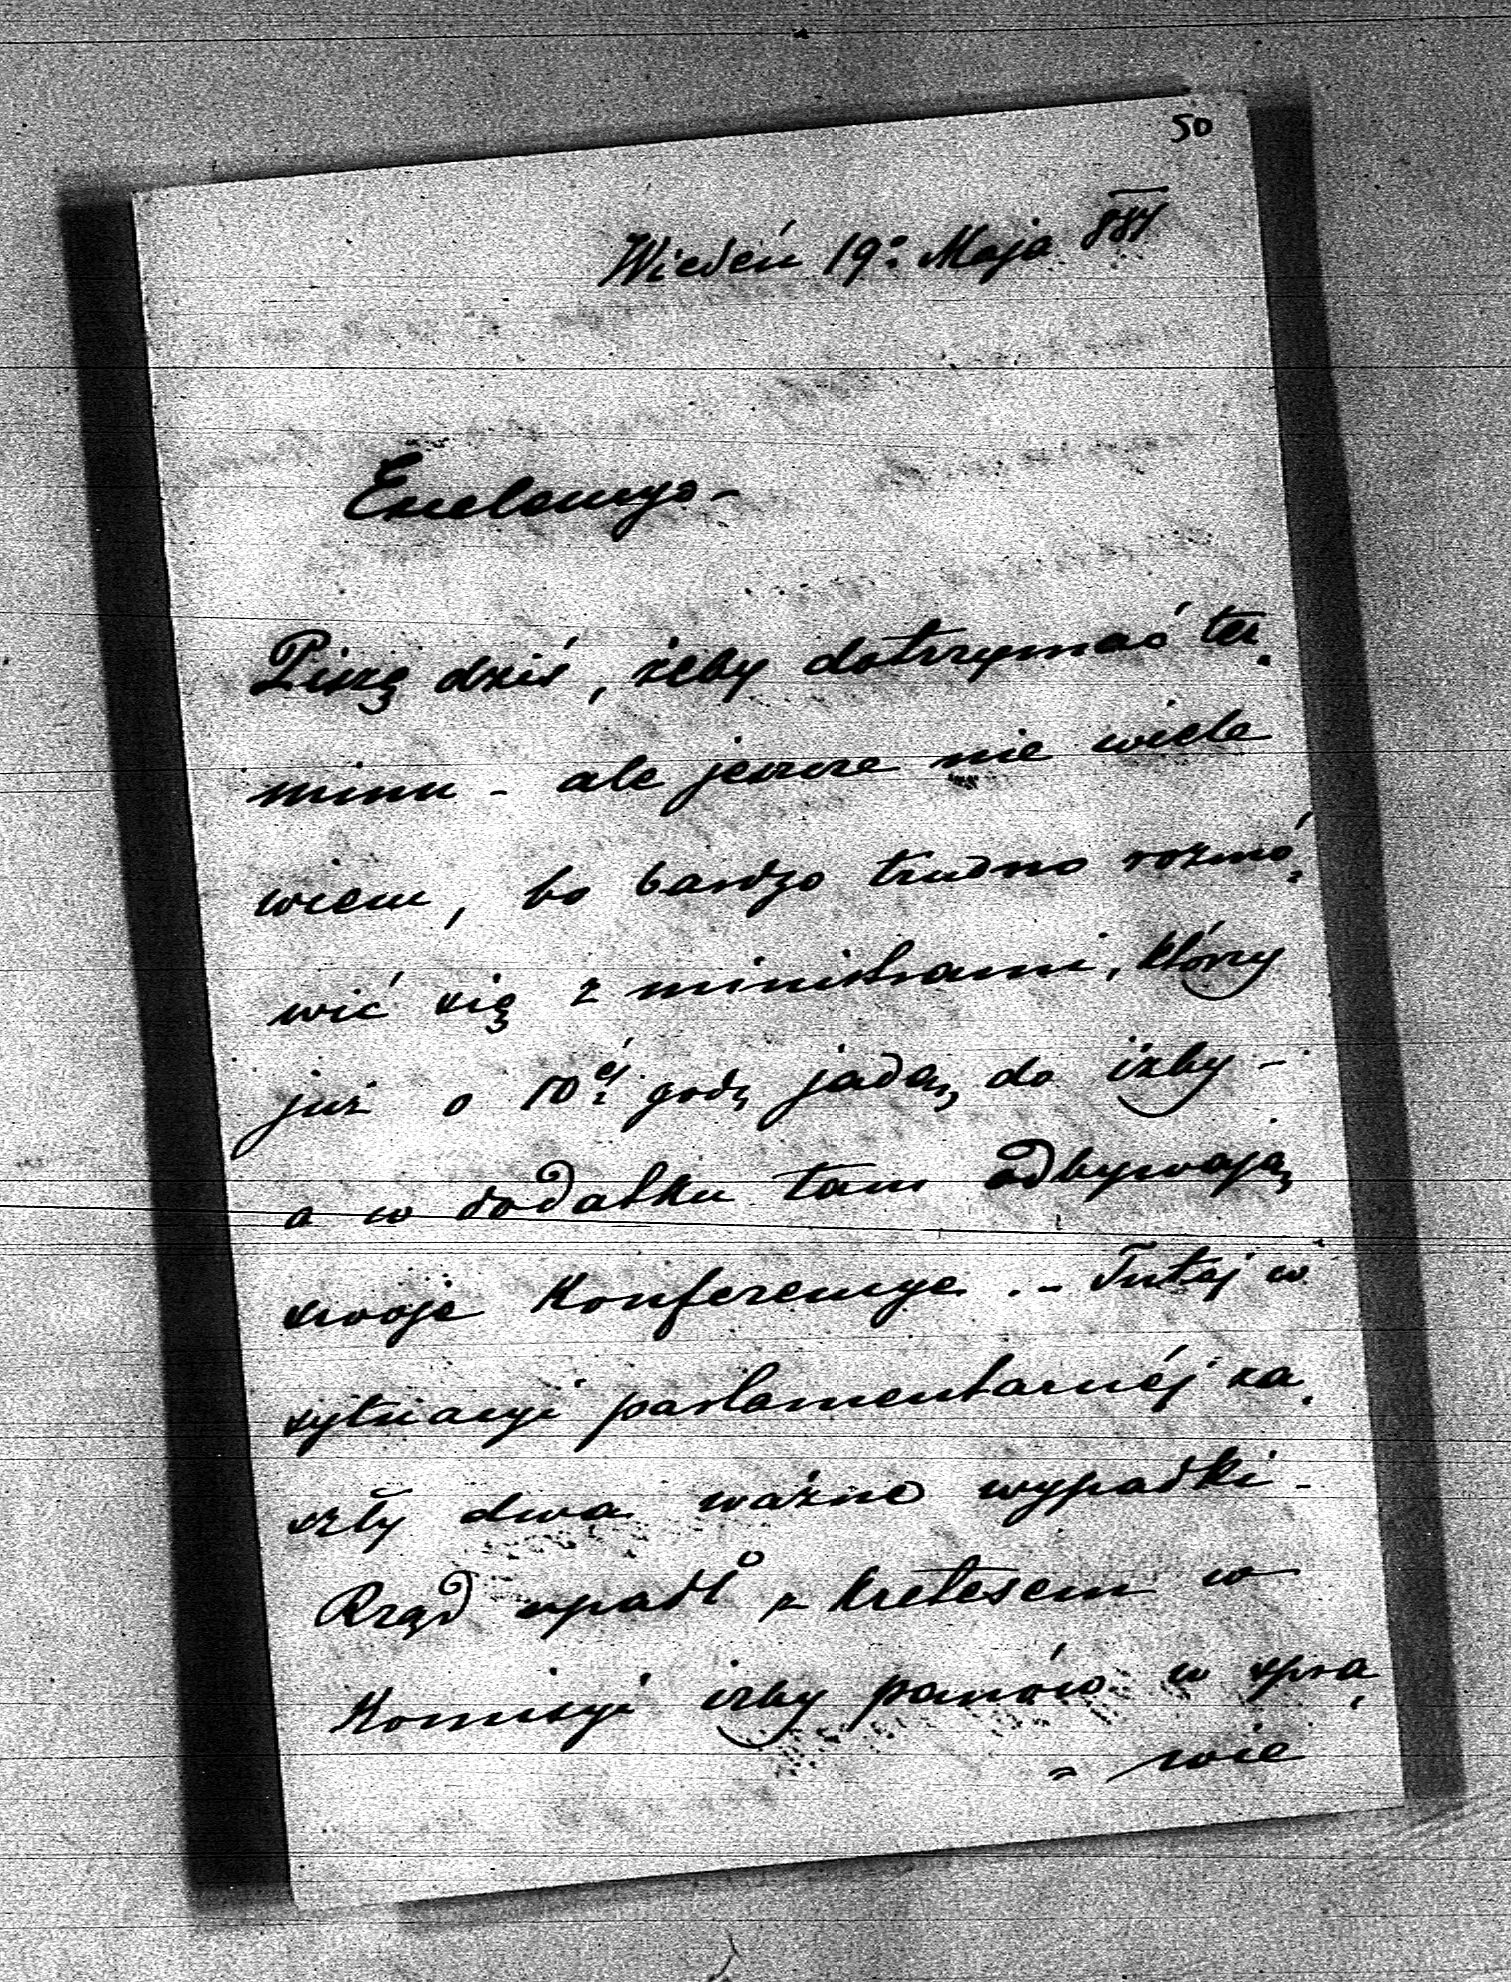 50
Wiedeń 19: Maja 884
Excelencyo -
Piszę dziś, żeby dotrzymać ter-
minu - ale jeszcze nie wiele
wiem, bo bardzo trudno rozmó-
wić się z ministrami, którzy
już o 10éj godz jadą do izby -
a w dodatku tam odbywają
swoje Konferencye. - Tutaj w
sytuacyi parlamentarnéj za-
szły dwa ważne wypadki -
Rząd upadł z kretesem w
Komisyi izby panów w spra-
- wie